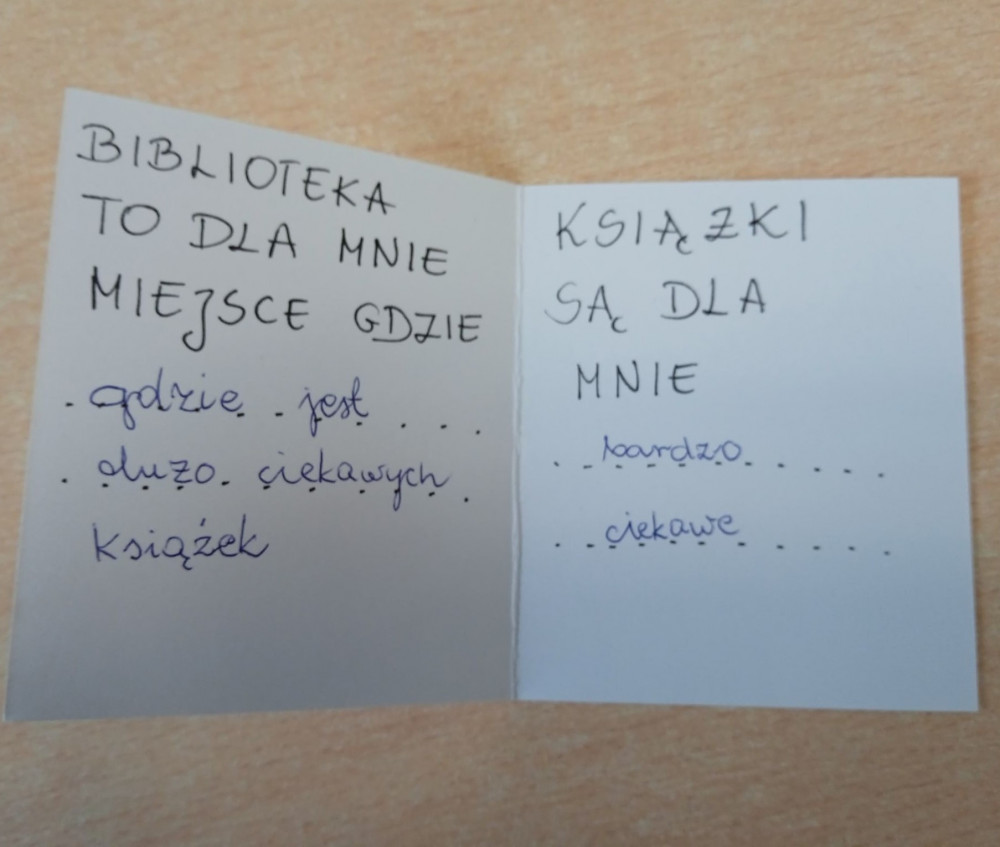 BIBLIOTEKA
TO DLA MNIE
MIEJSCE GDZIE
. gdzie . jest . . .
. dużo. ciekawych .
książek
KSIĄZKI
SĄ DLA
MNIE
. . bardzo . . . . .
. . ciekawe . . . . .